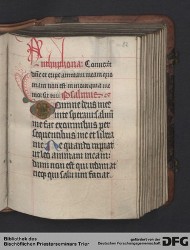 Antiphona: Convert
dñe et eripe animam meam quo
mam non est in morte qui me
mor sit tui Psalmus
Domine deus meus
in te speraui saluū
me fac ex omnibus per
sequentibus me et libera
me Ne quando rapiat
ut leo animam meam
dum non est qui redimat
neqz qui saluum faciat.
Bibliothek des
Bischöflichen Priesterseminars Trier
gefördert von der
Deutschen Forschungsgemeinschaft
DFG